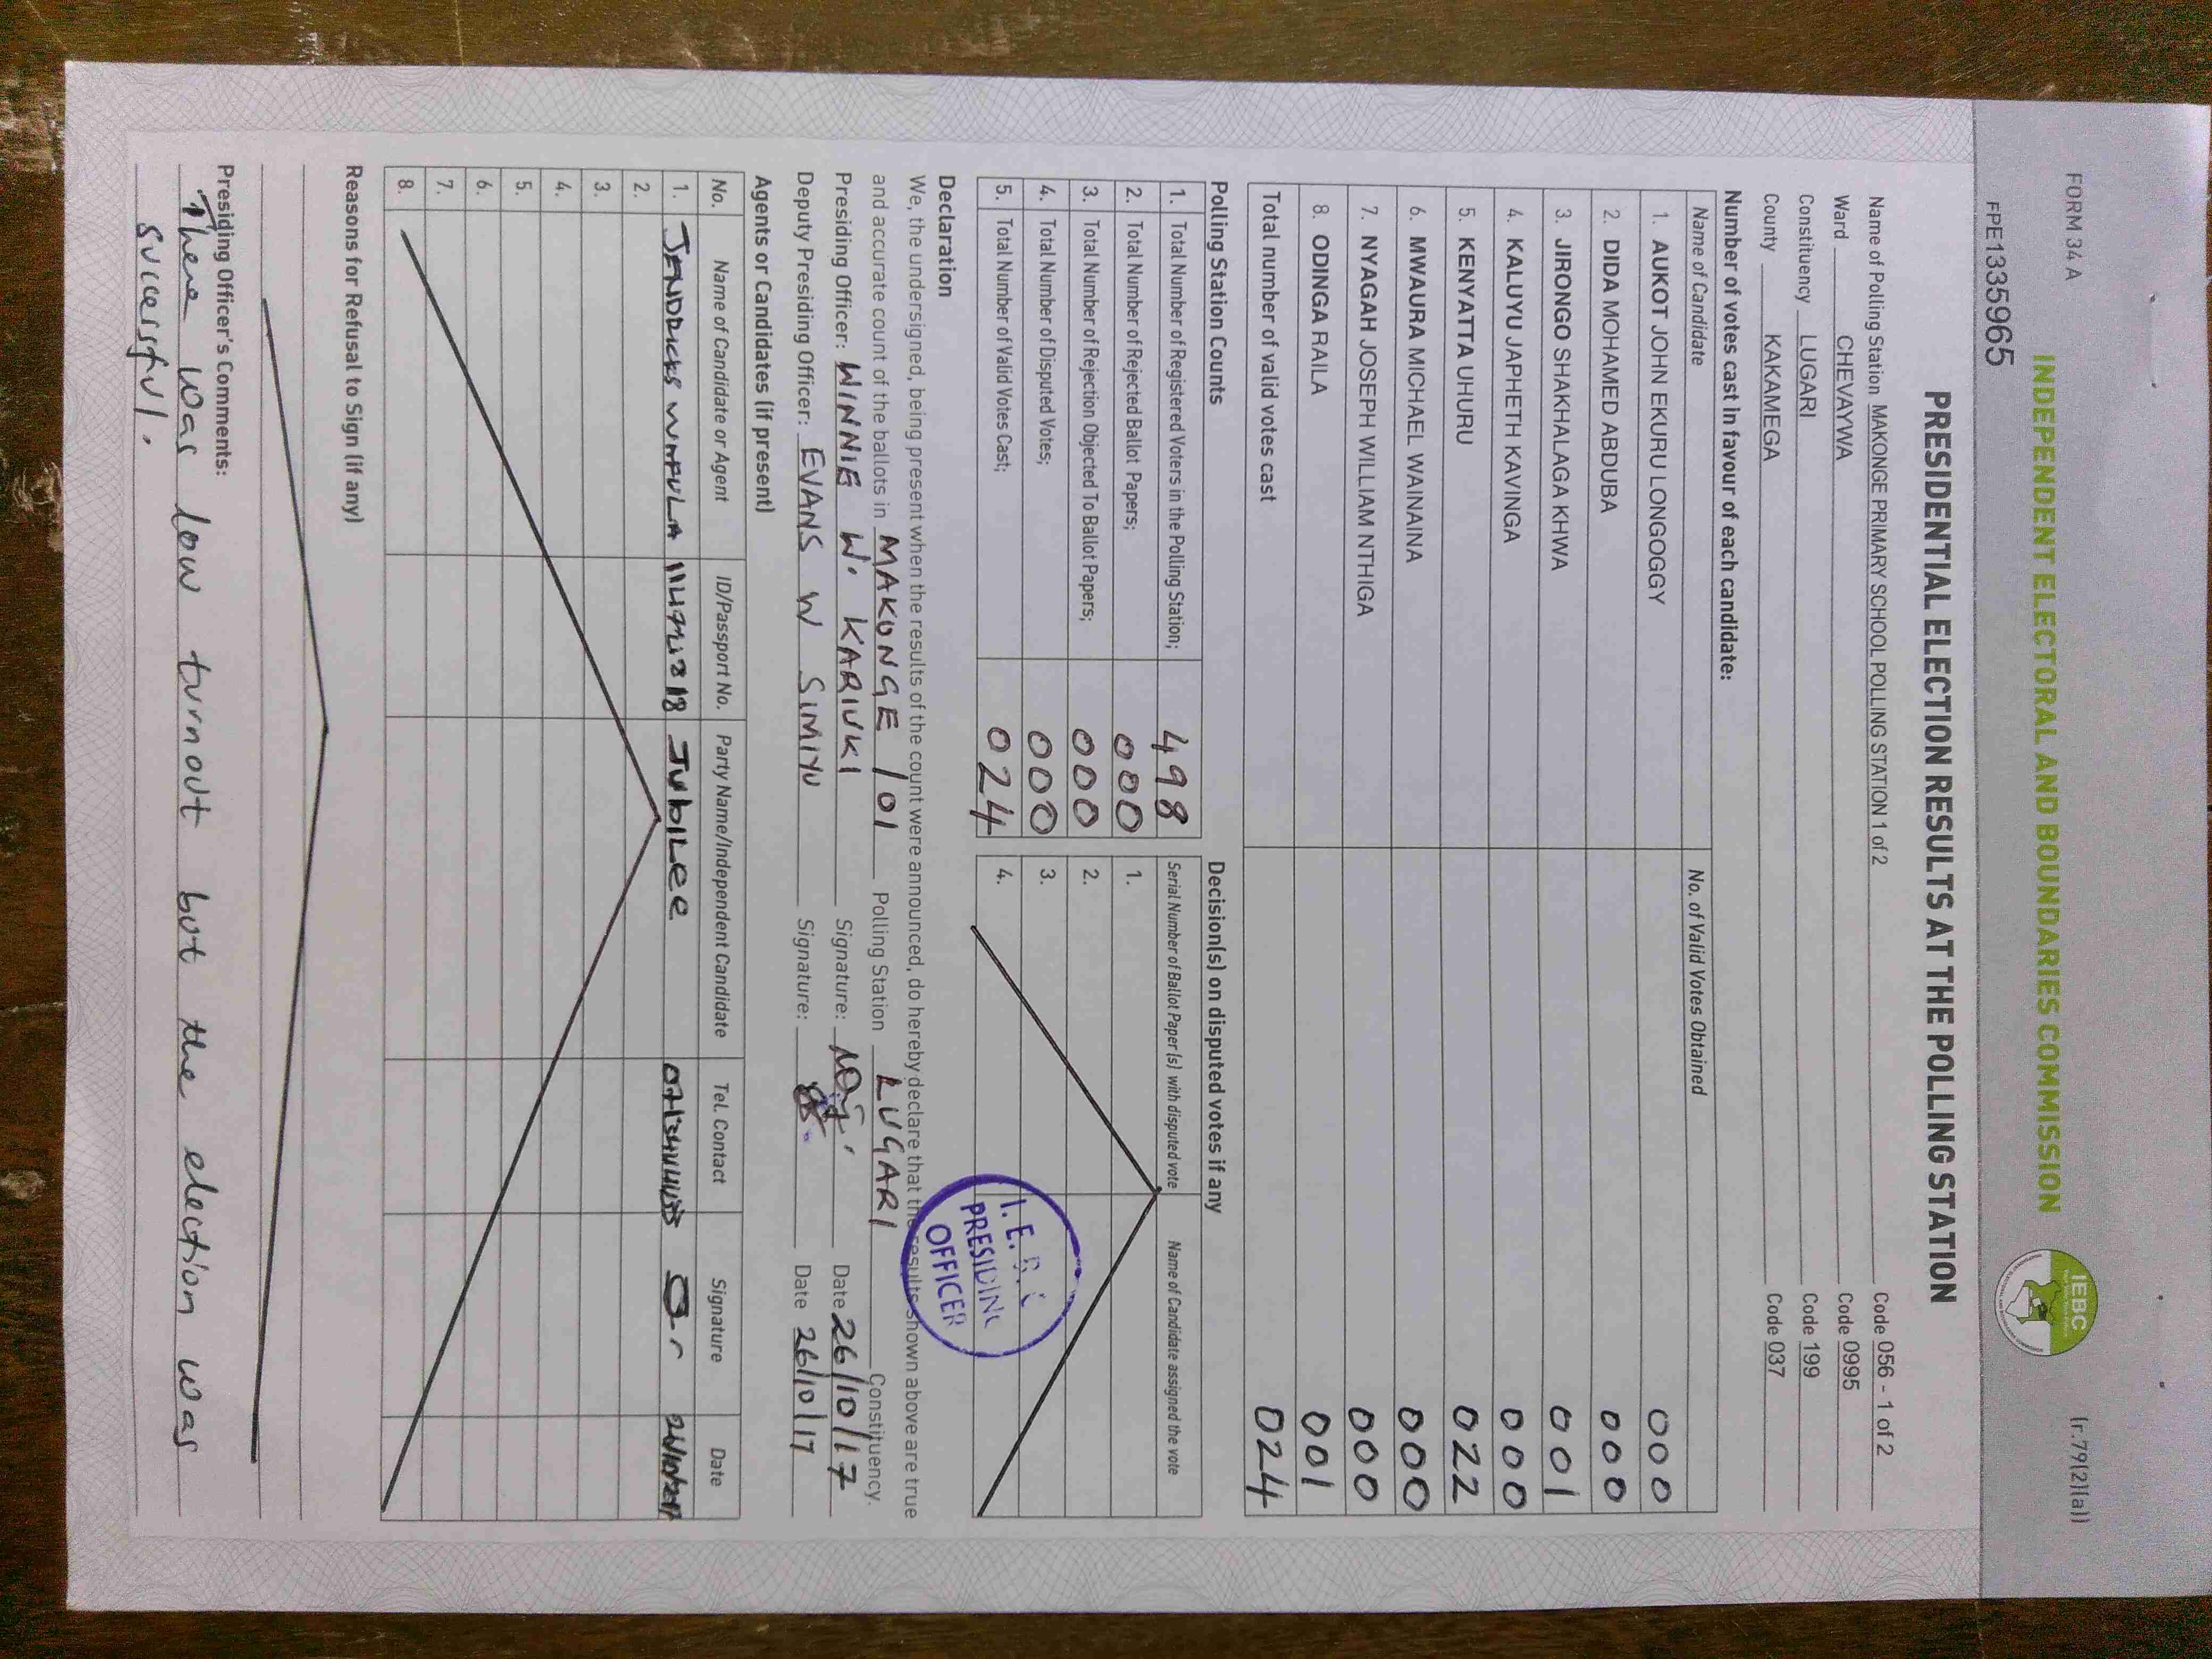 FORM 34 A
(r.79(2)(a))
INDEPENDENT ELECTORAL AND BOUNDARIES COMMISSION
IEBC
FPE1335965
PRESIDENTIAL ELECTION RESULTS AT THE POLLING STATION
Name of Polling Station MAKONGE PRIMARY SCHOOL POLLING STATION 1 of 2 Code 056 - 1 of 2
Ward CHEVAYWA Code 0995
Constituency LUGARI Code 199
County KAKAMEGA Code 037
Number of votes cast in favour of each candidate:
Name of Candidate No. of Valid Votes Obtained
1. AUKOT JOHN EKURU LONGOGGY 000
2. DIDA MOHAMED ABDUBA 000
3. JIRONGO SHAKHALAGA KHWA 001
4. KALUYU JAPHETH KAVINGA 000
5. KENYATTA UHURU 022
6. MWAURA MICHAEL WAINAINA 000
7. NYAGAH JOSEPH WILLIAM NTHIGA 000
8. ODINGA RAILA 001
Total number of valid votes cast 024
Polling Station Counts
1. Total Number of Registered Voters in the Polling Station; 498
2. Total Number of Rejected Ballot Papers; 000
3. Total Number of Rejection Objected To Ballot Papers; 000
4. Total Number of Disputed Votes; 000
5. Total Number of Valid Votes Cast; 024
Decision(s) on disputed votes if any
Serial Number of Ballot Paper (s) with disputed vote Name of Candidate assigned the vote
1.
2.
3.
4.
I.E.B.C
PRESIDING
OFFICER
Declaration
We, the undersigned, being present when the results of the count were announced, do hereby declare that the results shown above are true
and accurate count of the ballots in MAKONGE /01 Polling Station LUGARI Constituency.
Presiding Officer: WINNIE W. KARIUKI Signature: Date 26/10/17
Deputy Presiding Officer: EVANS W SIMIYU Signature: Date 26/10/17
Agents or Candidates (if present)
No. Name of Candidate or Agent ID/Passport No. Party Name/Independent Candidate Tel. Contact Signature Date
1. JUBILEE
2.
3.
4.
5.
6.
7.
8.
Reasons for Refusal to Sign (if any)
Presiding Officer's Comments:
There was low turnout but the election was
successful.